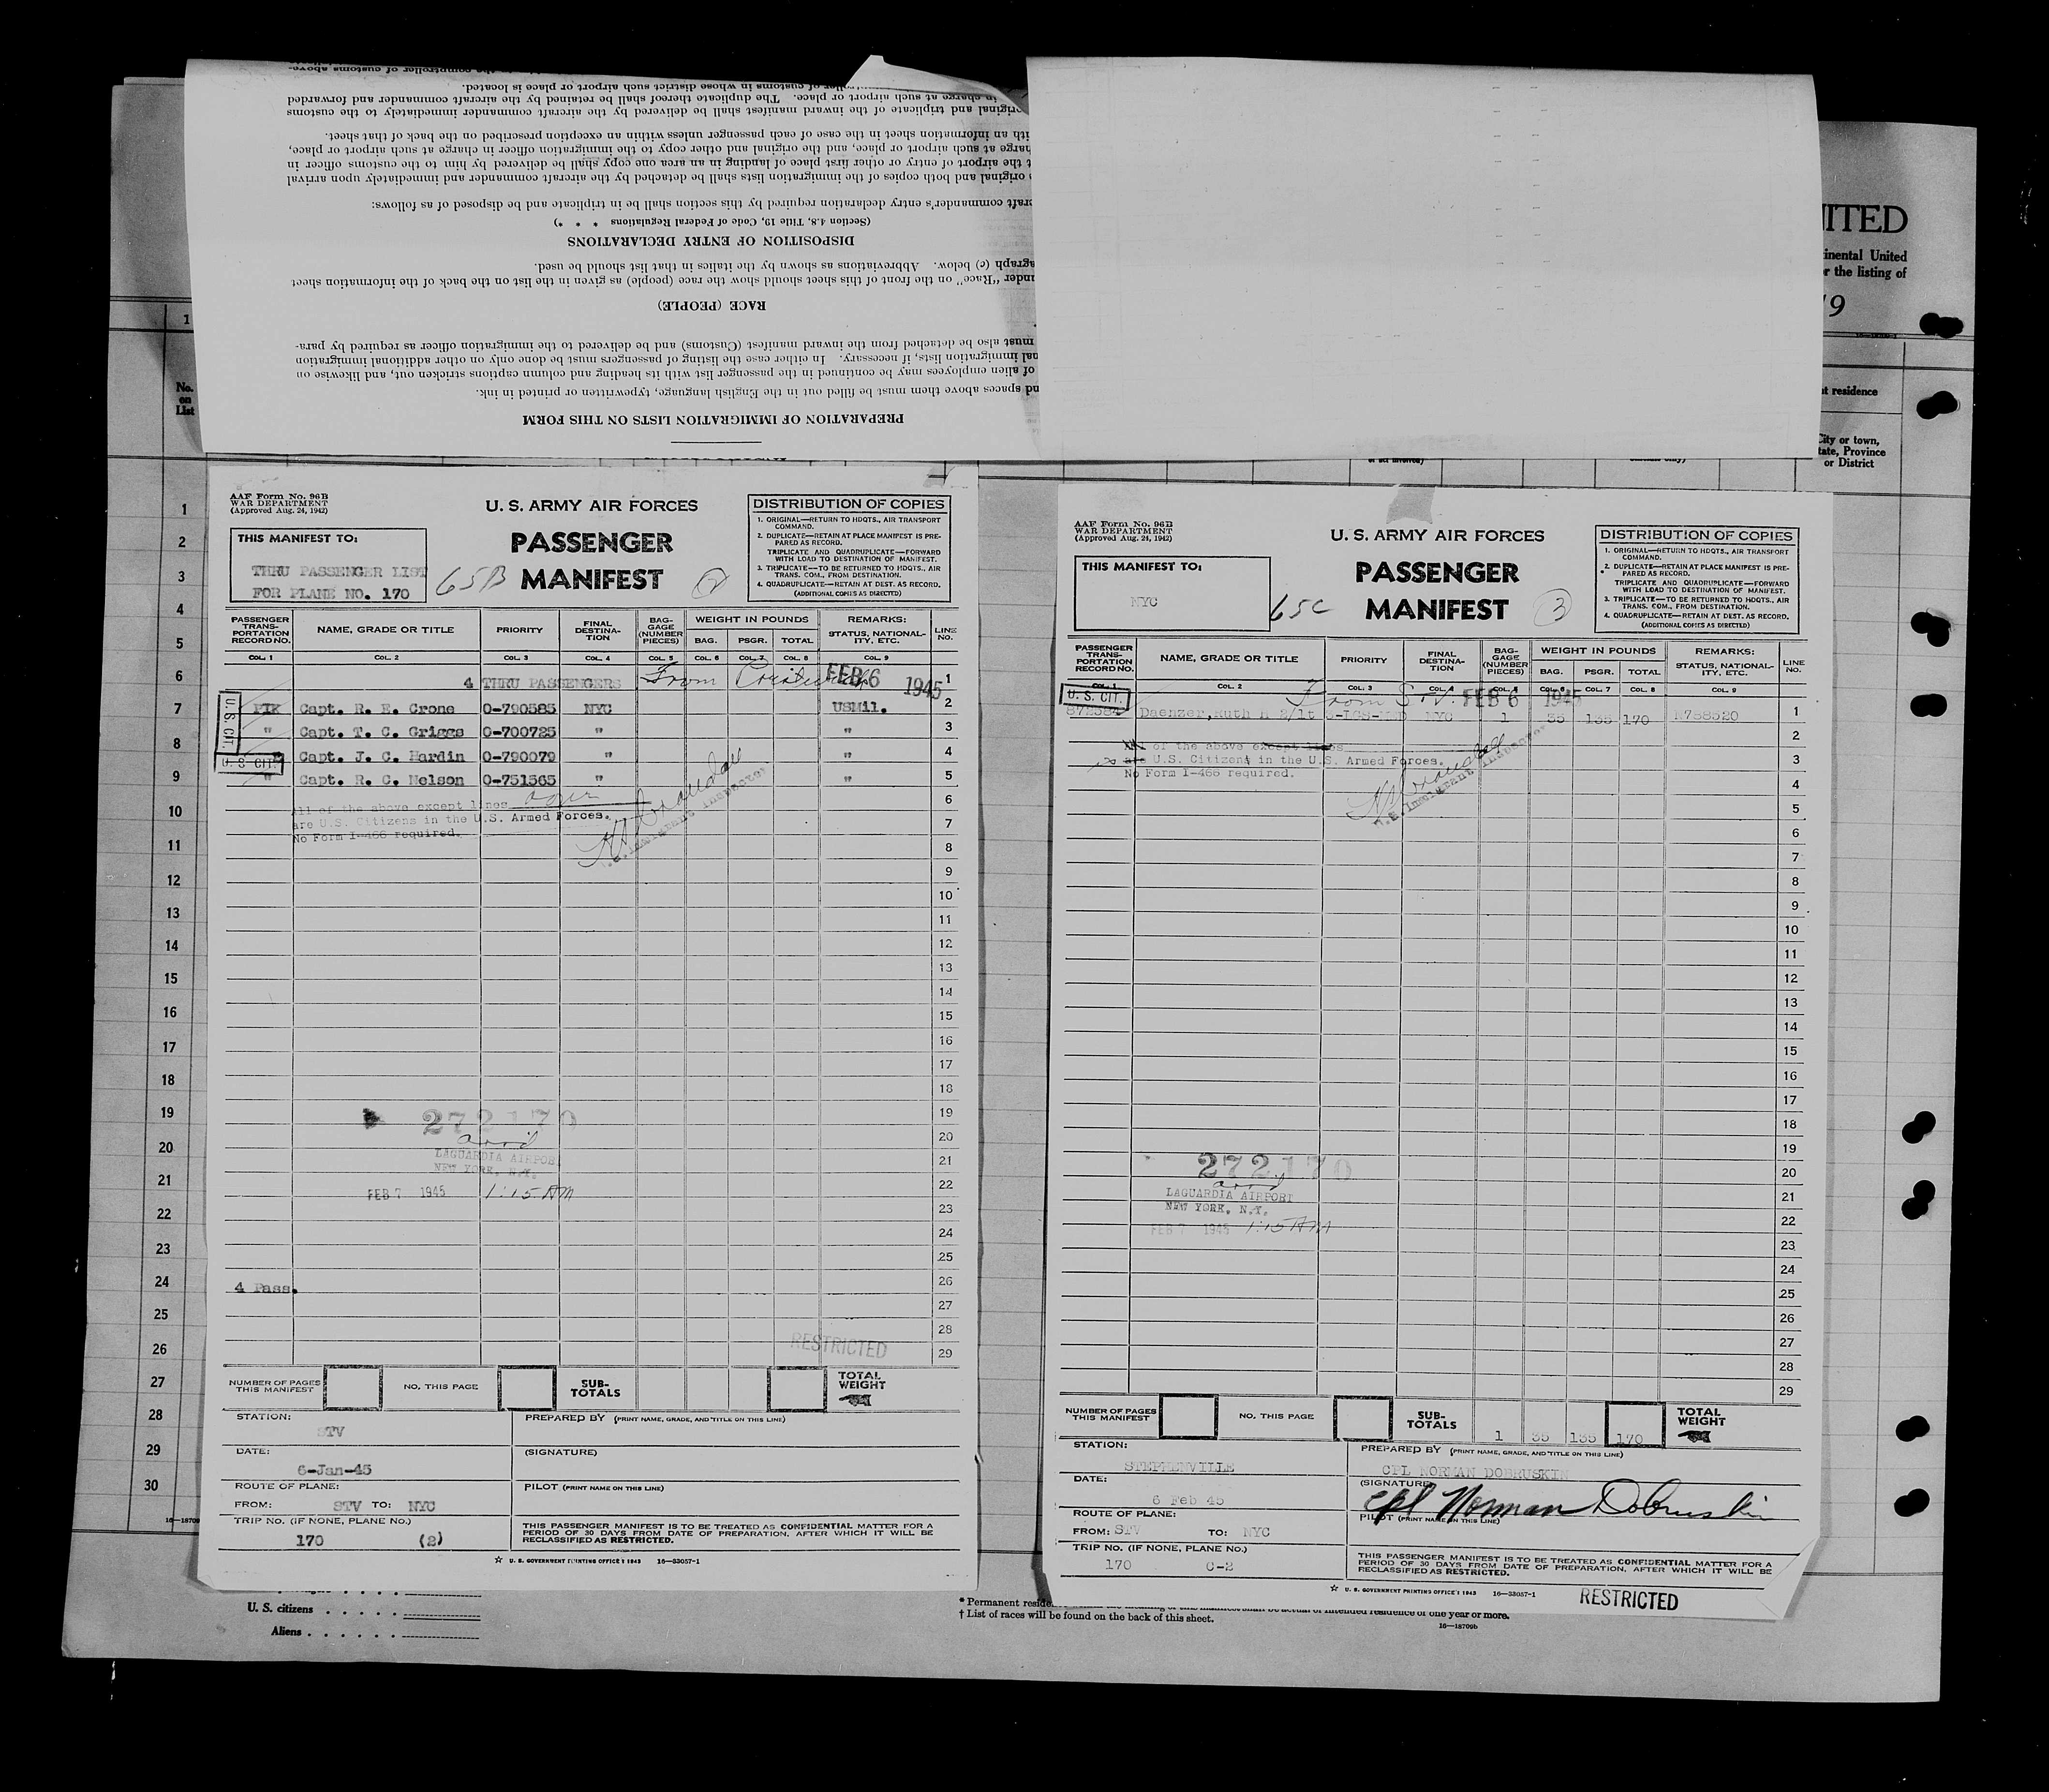 comptroller of customs above-
troller of customs in whose district such airport or place is located.
in charge at such airport or place. The duplicate thereof shall be retained by the aircraft commander and forwarded
original and triplicate of the inward manifest shall be delivered by the aircraft commander immediately to the customs
ith an information sheet in the case of each passenger unless within an exception prescribed on the back of that sheet.
harge at such airport or place, and the original and other copy to the immigration officer in charge at such airport or place,
t the airport of entry or other first place of landing in an area one copy shall be delivered by him to the customs officer in
original and both copies of the immigration lists shall be detached by the aircraft commander and immediately upon arrival
craft commander's entry declaration required by this section shall be in triplicate and be disposed of as follows:
(Section 4.8, Title 19, Code of Federal Regulations * * *)
DISPOSITION OF ENTRY DECLARATIONS
agraph (c) below. Abbreviations as shown by the italics in that list should be used.
under "Race" on the front of this sheet should show the race (people) as given in the list on the back of the information sheet
RACE (PEOPLE)
must also be detached from the inward manifest (Customs) and be delivered to the immigration officer as required by para-
nal immigration lists, if necessary. In either case the listing of passengers must be done only on other additional immigration
of alien employees may be continued in the passenger list with its heading and column captions stricken out, and likewise on
nd spaces above them must be filled out in the English language, typewritten or printed in ink.
PREPARATION OF IMMIGRATION LISTS ON THIS FORM
ITED
inental United
r the listing of
19
t residence
City or town,
tate, Province
or District
1
No.
on
List
1
2
3
4
5
6
7
8
9
10
11
12
13
14
15
16
17
18
19
20
21
22
23
24
25
26
27
28
29
30
AAF Form No. 96B
WAR DEPARTMENT
(Approved Aug. 24, 1942)
U. S. ARMY AIR FORCES
PASSENGER
MANIFEST
65B
2
THIS MANIFEST TO:
THRU PASSENGER LIST
FOR PLANE NO. 170
DISTRIBUTION OF COPIES
1. ORIGINAL—RETURN TO HDQTS., AIR TRANSPORT
COMMAND.
2. DUPLICATE—RETAIN AT PLACE MANIFEST IS PRE-
PARED AS RECORD.
TRIPLICATE AND QUADRUPLICATE—FORWARD
WITH LOAD TO DESTINATION OF MANIFEST.
3. TRIPLICATE—TO BE RETURNED TO HDQTS., AIR
TRANS. COM., FROM DESTINATION.
4. QUADRUPLICATE—RETAIN AT DEST. AS RECORD.
(ADDITIONAL COPIES AS DIRECTED)
PASSENGER TRANS- PORTATION RECORD NO. NAME, GRADE OR TITLE PRIORITY FINAL DESTINA- TION BAG- GAGE (NUMBER PIECES) WEIGHT IN POUNDS BAG. PSGR. TOTAL REMARKS: STATUS, NATIONAL- ITY, ETC. LINE NO.
COL. 1 COL. 2 COL. 3 COL. 4 COL. 5 COL. 6 COL. 7 COL. 8 COL. 9
4 THRU PASSENGERS From FEB 6 1945 1
U. S. CIT.
PIK Capt. R. E. Crone O-790585 NYC USMil. 2
" Capt. T. C. Griggs O-700725 " " 3
" Capt. J. C. Hardin O-790079 " " 4
U. S. CIT.
" Capt. R. C. Nelson O-751565 " " 5
All of the above except lines
are U.S. Citizens in the U.S. Armed Forces.
No Form I-466 required.
U.S. Immigrant Inspector
6
7
8
9
10
11
12
13
14
15
16
17
18
19
20
21
22
23
24
25
26
27
28
29
272170
arrd
LAGUARDIA AIRPORT
NEW YORK, N.Y.
FEB 7 1945 1:15 AM
4 Pass.
RESTRICTED
NUMBER OF PAGES THIS MANIFEST NO. THIS PAGE SUB- TOTALS TOTAL WEIGHT
STATION:
STV
PREPARED BY (PRINT NAME, GRADE, AND TITLE ON THIS LINE)
DATE:
6-Jan-45
(SIGNATURE)
ROUTE OF PLANE:
FROM: STV TO: NYC
PILOT (PRINT NAME ON THIS LINE)
TRIP NO. (IF NONE, PLANE NO.)
170 (2)
THIS PASSENGER MANIFEST IS TO BE TREATED AS CONFIDENTIAL MATTER FOR A
PERIOD OF 30 DAYS FROM DATE OF PREPARATION, AFTER WHICH IT WILL BE
RECLASSIFIED AS RESTRICTED.
☆ U. S. GOVERNMENT PRINTING OFFICE: 1943 16—33057-1
AAF Form No. 96B
WAR DEPARTMENT
(Approved Aug. 24, 1942)
U. S. ARMY AIR FORCES
PASSENGER
MANIFEST
65C
3
THIS MANIFEST TO:
NYC
DISTRIBUTION OF COPIES
1. ORIGINAL—RETURN TO HDQTS., AIR TRANSPORT
COMMAND.
2. DUPLICATE—RETAIN AT PLACE MANIFEST IS PRE-
PARED AS RECORD.
TRIPLICATE AND QUADRUPLICATE—FORWARD
WITH LOAD TO DESTINATION OF MANIFEST.
3. TRIPLICATE—TO BE RETURNED TO HDQTS., AIR
TRANS. COM., FROM DESTINATION.
4. QUADRUPLICATE—RETAIN AT DEST. AS RECORD.
(ADDITIONAL COPIES AS DIRECTED)
PASSENGER TRANS- PORTATION RECORD NO. NAME, GRADE OR TITLE PRIORITY FINAL DESTINA- TION BAG- GAGE (NUMBER PIECES) WEIGHT IN POUNDS BAG. PSGR. TOTAL REMARKS: STATUS, NATIONAL- ITY, ETC. LINE NO.
COL. 1 COL. 2 COL. 3 COL. 4 COL. 5 COL. 6 COL. 7 COL. 8 COL. 9
U. S. CIT. From FEB 6 1945
Daenzer, Ruth H 2/lt NYC 1 35 135 170 N788520 1
All of the above except lines
are U.S. Citizens in the U.S. Armed Forces.
No Form I-466 required.
U.S. Immigrant Inspector
2
3
4
5
6
7
8
9
10
11
12
13
14
15
16
17
18
19
20
21
22
23
24
25
26
27
28
29
272170
arrd
LAGUARDIA AIRPORT
NEW YORK, N.Y.
FEB 7 1945 1:15 AM
NUMBER OF PAGES THIS MANIFEST NO. THIS PAGE SUB- TOTALS 1 35 135 170 TOTAL WEIGHT
STATION:
STEPHENVILLE
PREPARED BY (PRINT NAME, GRADE, AND TITLE ON THIS LINE)
CPL NORMAN DOBRUSKIN
DATE:
6 Feb 45
(SIGNATURE)
Cpl Norman Dobruskin
ROUTE OF PLANE:
FROM: STV TO: NYC
PILOT (PRINT NAME ON THIS LINE)
TRIP NO. (IF NONE, PLANE NO.)
170 C-2
THIS PASSENGER MANIFEST IS TO BE TREATED AS CONFIDENTIAL MATTER FOR A
PERIOD OF 30 DAYS FROM DATE OF PREPARATION, AFTER WHICH IT WILL BE
RECLASSIFIED AS RESTRICTED.
☆ U. S. GOVERNMENT PRINTING OFFICE: 1943 16—33057-1
RESTRICTED
U. S. citizens
Aliens
* Permanent residence of one year or more.
† List of races will be found on the back of this sheet.
16—18709b